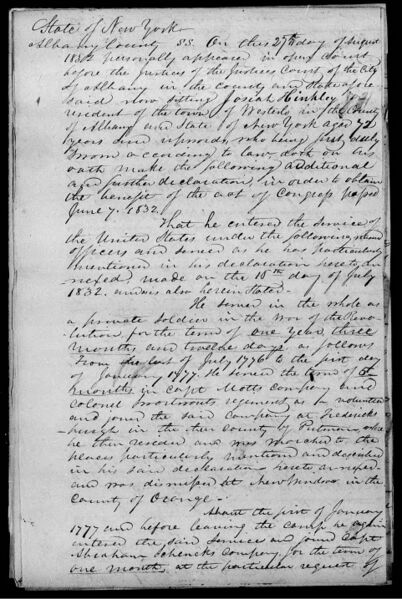 State of New York
Albany County SS. On this 27th day of August
1832 personally appeared in open Court
before the Justices of the Justices Court of the City
of Albany in the County and State afore
said now sitting Josiah Hinkley a
resident of the town of Westerlo in the County
of Albany and State of New York aged 72
years and upwards, who being first duly
sworn according to law doth on his
oath make the following additional
and further declaration in order to obtain
the benefit of the act of Congress passed
June 7. 1832.
That he entered the service of
the United States under the following named
officers and served as he has particularly
mentioned in his declaration hereto an
nexed, made on the 18th day of July
1832. and as also herein stated
He served in the whole as
a private Soldier in the War of the Revo
lution for the term of One Year, three
months and twelve days as follows
From the last of July 1776 to the first day
of January 1777. He served the term of 5
months in Capt Motts Company and
Colonel regiment as a volunteer
and joind the said Company at Fredericks
burgh in the County of Putnam, where
he then resided and was marched to the
places particularly mentioned and described
in his said declaration hereto annexed
and was dismissed at New Windsor in the
County of Orange.
About the first of January
1777 and before leaving the camp he again
entered the said service and joind Capt
Abraham Schencks Company, for the term of
one month, at the particular request of